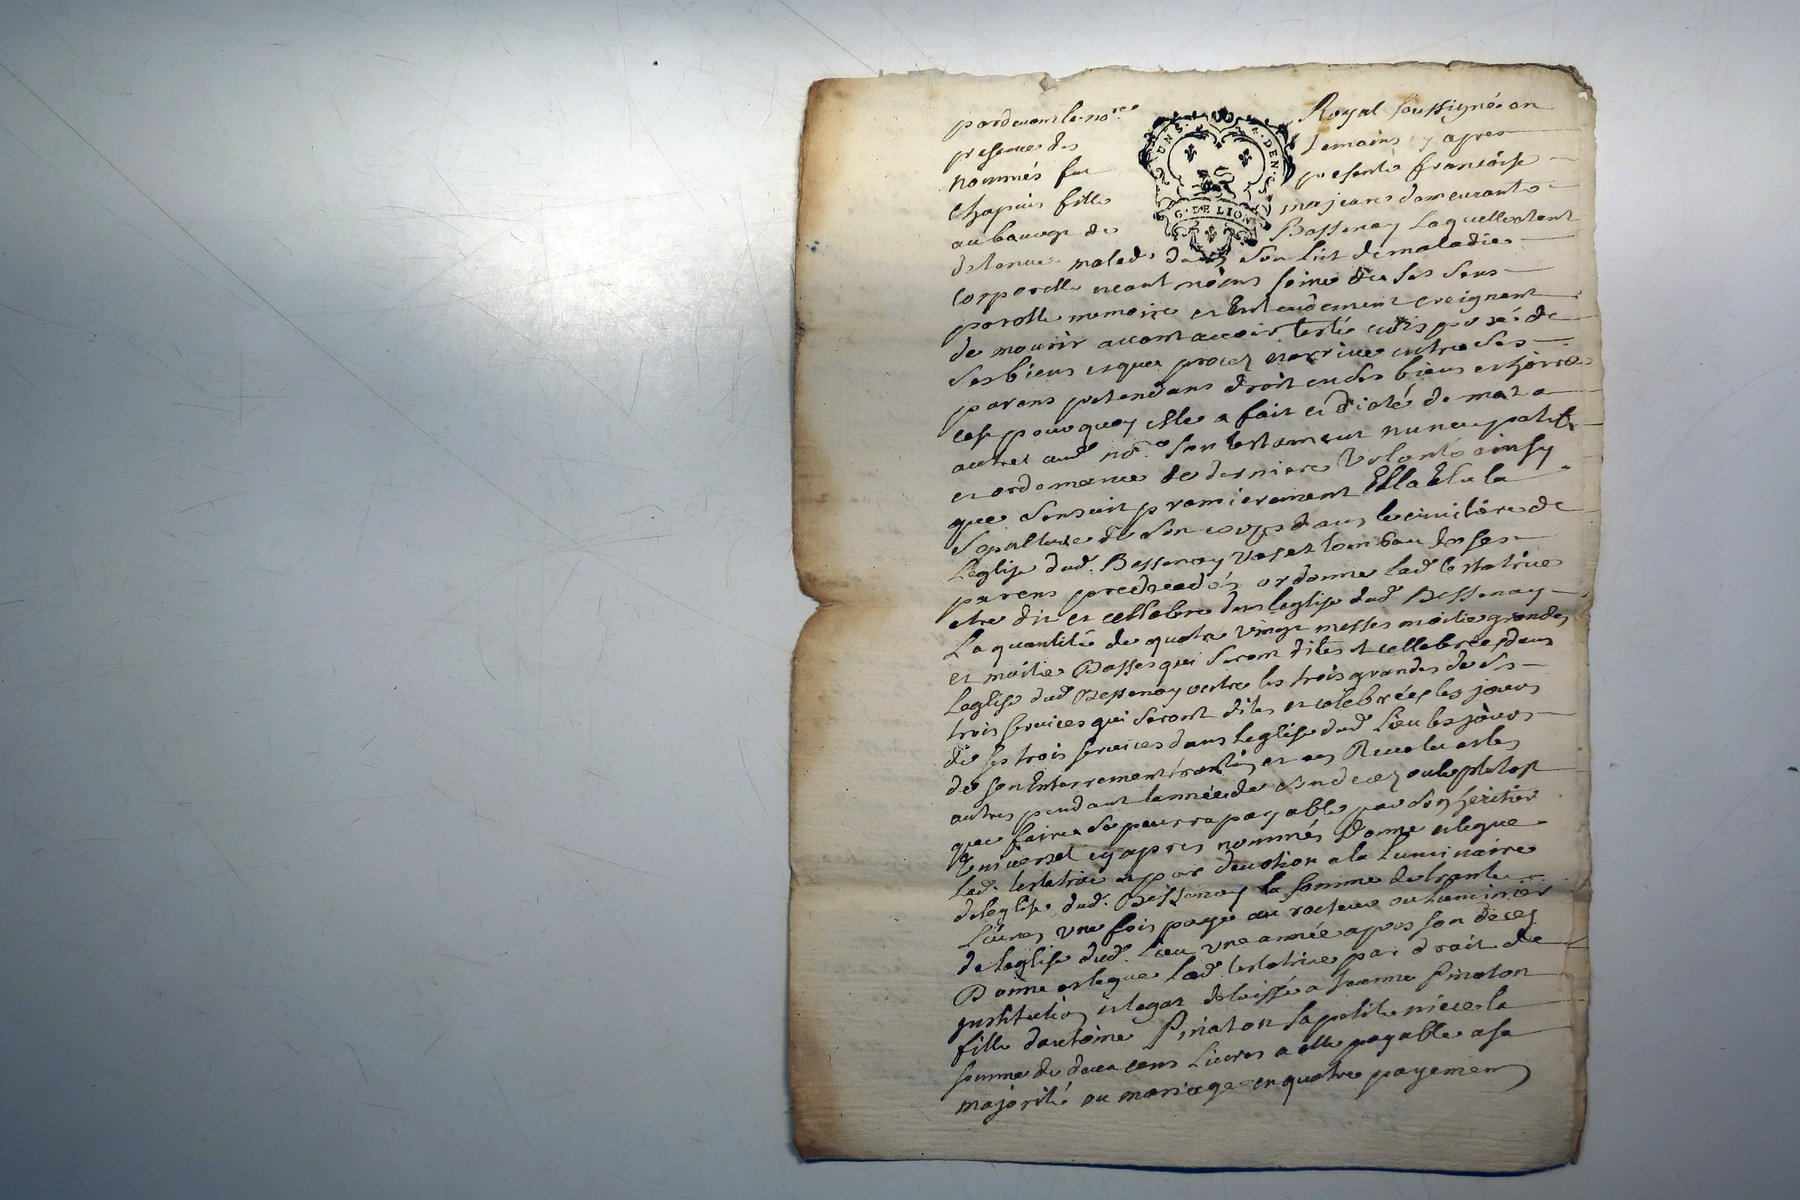 pardevant le no.re Royal soussigné en
presence des temoins cy apres
nommés fut presente francoise
Chapuis fille majeure demeurante
au bourg de Bessenay Laquelle etant
detenue malade dans son lict de maladie
corporelle neantmoins saine de ses sens
parolle memoire et Entendement creignent
de mourir avant avoir testé et disposé de
ses biens et que procez n'arrive entre ses
parens pretendans droit en ses biens et hoirie
cest pourquoy elle a fait et dicté de mot a
autres aud. no.re son testament nuncupatif
et ordonnance de derniere Volonté ainsy
que s'ensuit premierement Ella Elu la
sepulture de son corps dans le cimitiere de
L'eglise dud. Bessenay Vas et tombau de ses
parens predecedés ordonne lad. testatrice
etre dit et cellebre dans leglise dud. Bessenay
La quantité de quatre vingt messes moitie grandes
et moitie Basses qui seront dites et cellebrées dans
Leglise dud. Bessenay outre les trois grandes de ses
trois services qui seront dites et celebrées les jours
de ses trois services dans leglise dud. Lieu les jours
de son Enterrement et les
autres pendant lannée de son decez ou le plutot
que faire se pourra payable par son heritier
Universel cy apres nommés Donne et legue
lad. testatrice par devotion a la Luminaire
de leglise dud. Bessenay la somme de trante
Livres une fois payé au recteur ou luminier
de leglise dud. Lieu une année apres son decez
Donne et legue lad. testatrice par droit de
institution et legat delaissé a Jeanne Pinaton
fille dantoine Pinaton sa petite niéce la
somme de deux cens Livres a elle payable a sa
majorité ou mariage en quatre payemens
G. DE LION